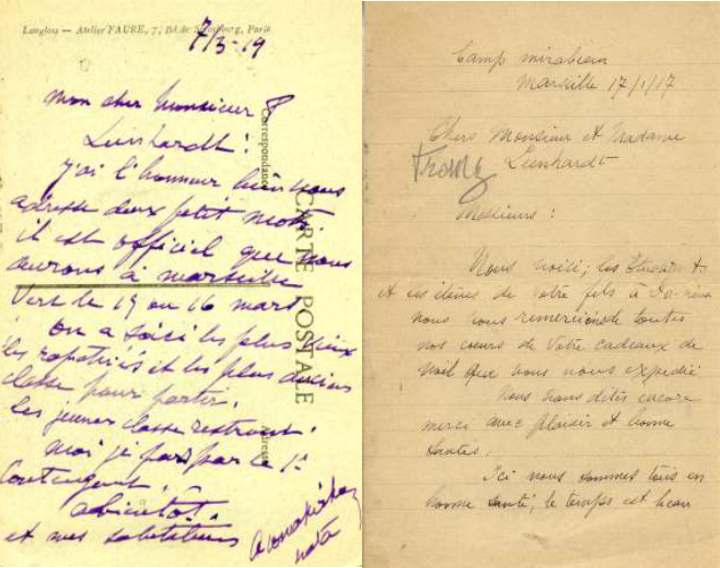 Langlois — Atelier FAURE, 7, Bd de Strasbourg, Paris
7/3-19
Correspondance
CARTE POSTALE
Adresse
mon cher Monsieur
Leinhardt!
J'ai l'honneur bien vous
adresse deux petit mots
il est officiel que nous
aurons à marseille
Vers le 15 ou 16 mars
On a les plus vieux
les rapatriés et les plus anciens
classe pour partir.
les jeunes classe restront!
moi je pars par le 1r
Contengent.
abientôt.
et mes salutations
Camp mirabeau
Marseille 17/1/17
Chers Monsieur et Madame
Leenhardt
Frantz
Messieurs :
Nous voici; les
et ces élèves de votre fils à
nous vous de toutes
nos cœurs de Votre cadeaux de
Noël que vous nous expedié
Nous vous dites encore
merci avec plaisir et bonne
santes.
Ici nous sommes tous en
bonne santé, le temps est beau